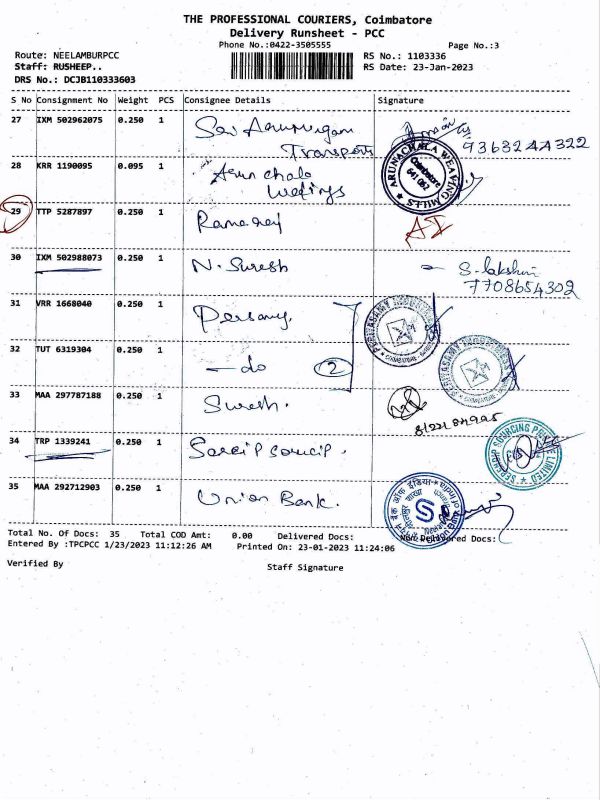 THE PROFESSIONAL COURIERS, Coimbatore
Delivery Runsheet - PCC
Phone No.:0422-3505555
Page No.:3
Route: NEELAMBURPCC
RS No.: 1103336
Staff: RUSHEEP..
RS Date: 23-Jan-2023
DRS No.: DCJB110333603
S No Consignment No Weight PCS Consignee Details Signature
27 IXM 502962075 0.250 1
Transports
9363244322
28 KRR 1190095 0.095 1 Arun chala
ARUNACHALA WEAVING MILLS
Coimbatore
641 062
29 TTP 5287897 0.250 1 Ramaraj
30 IXM 502988073 0.250 1 N. Suresh S. lakshmi
7708654302
31 VRR 1668040 0.250 1
32 TUT 6319304 0.250 1 - do 2
33 MAA 297787188 0.250 1 Suresh.
34 TRP 1339241 0.250 1
SOURCING PRIVATE LIMITED
35 MAA 292712903 0.250 1 Union Bank.
Total No. Of Docs: 35 Total COD Amt: 0.00 Delivered Docs: Non Delivered Docs:
Entered By :TPCPCC 1/23/2023 11:12:26 AM Printed On: 23-01-2023 11:24:06
Verified By
Staff Signature